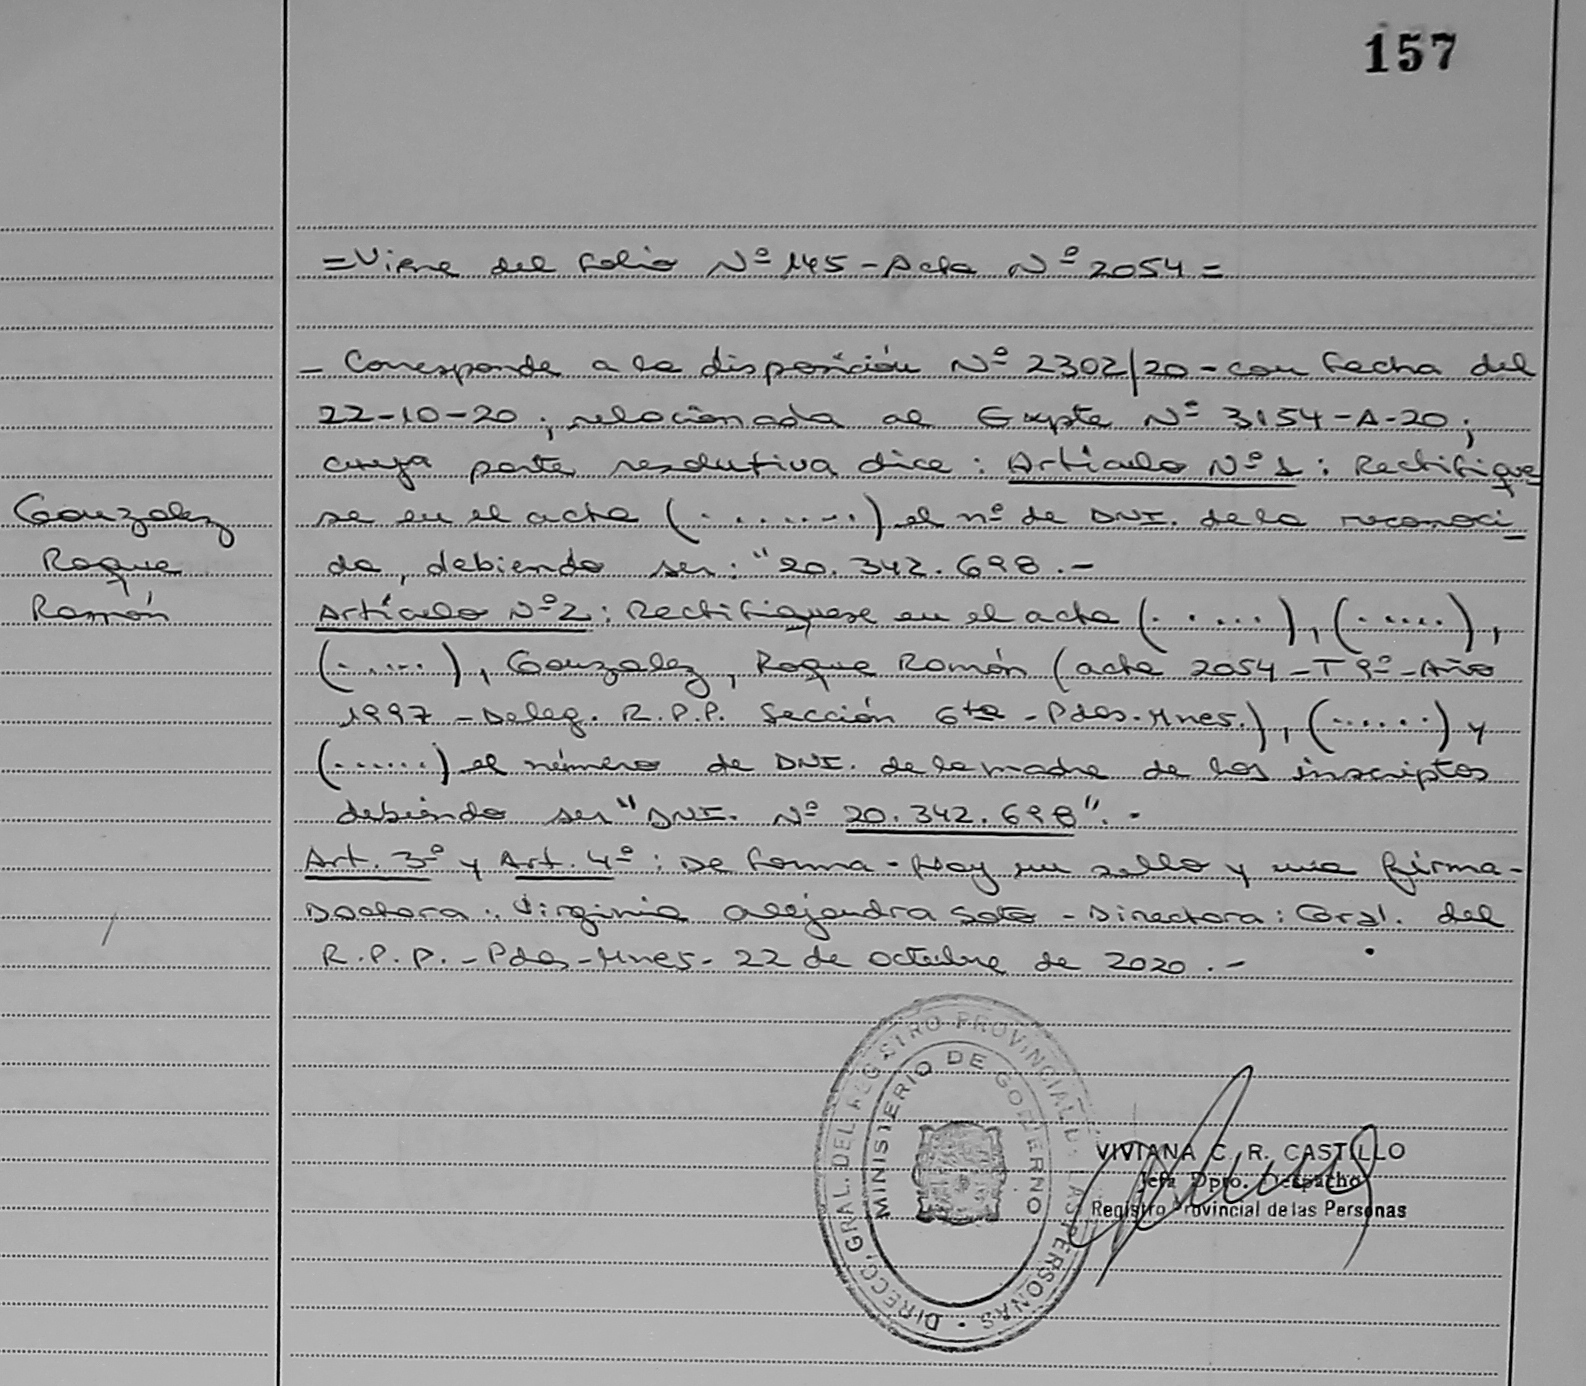 157
=Viene del folio Nº 145-Acta Nº 2054=
- Corresponde a la disposición Nº 2302/20-con fecha del
22-10-20; relacionada al Expte Nº 3154-A-20;
cuya parte resolutiva dice: Artículo Nº1: Rectifique
se en el acta (.......) el nº de DNI. de la reconoci
da, debiendo ser: "20.342.698.-
Artículo Nº2: Rectifiquese en el acta (......), (......),
(......), Gonzalez, Roque Ramón (acta 2054-T 9º-Año
1997-Deleg. R.P.P. Sección 6ta-Pdas-Mnes.), (......) y
(......) el número de DNI. de la madre de los inscriptos
debiendo ser "DNI. Nº 20.342.698".-
Art. 3º y Art. 4º: De forma-Hay un sello y una firma-
Doctora: Virginia Alejandra Soto-Directora: Gral. del
R.P.P.-Pdas-Mnes- 22 de octubre de 2020.-
Gonzalez
Roque
Ramón
DIRECC. GRAL. DEL REGISTRO PROVINCIAL DE LAS PERSONAS
MINISTERIO DE GOBIERNO
VIVIANA C. R. CASTILLO
Jefa Dpto. Despacho
Registro Provincial de las Personas